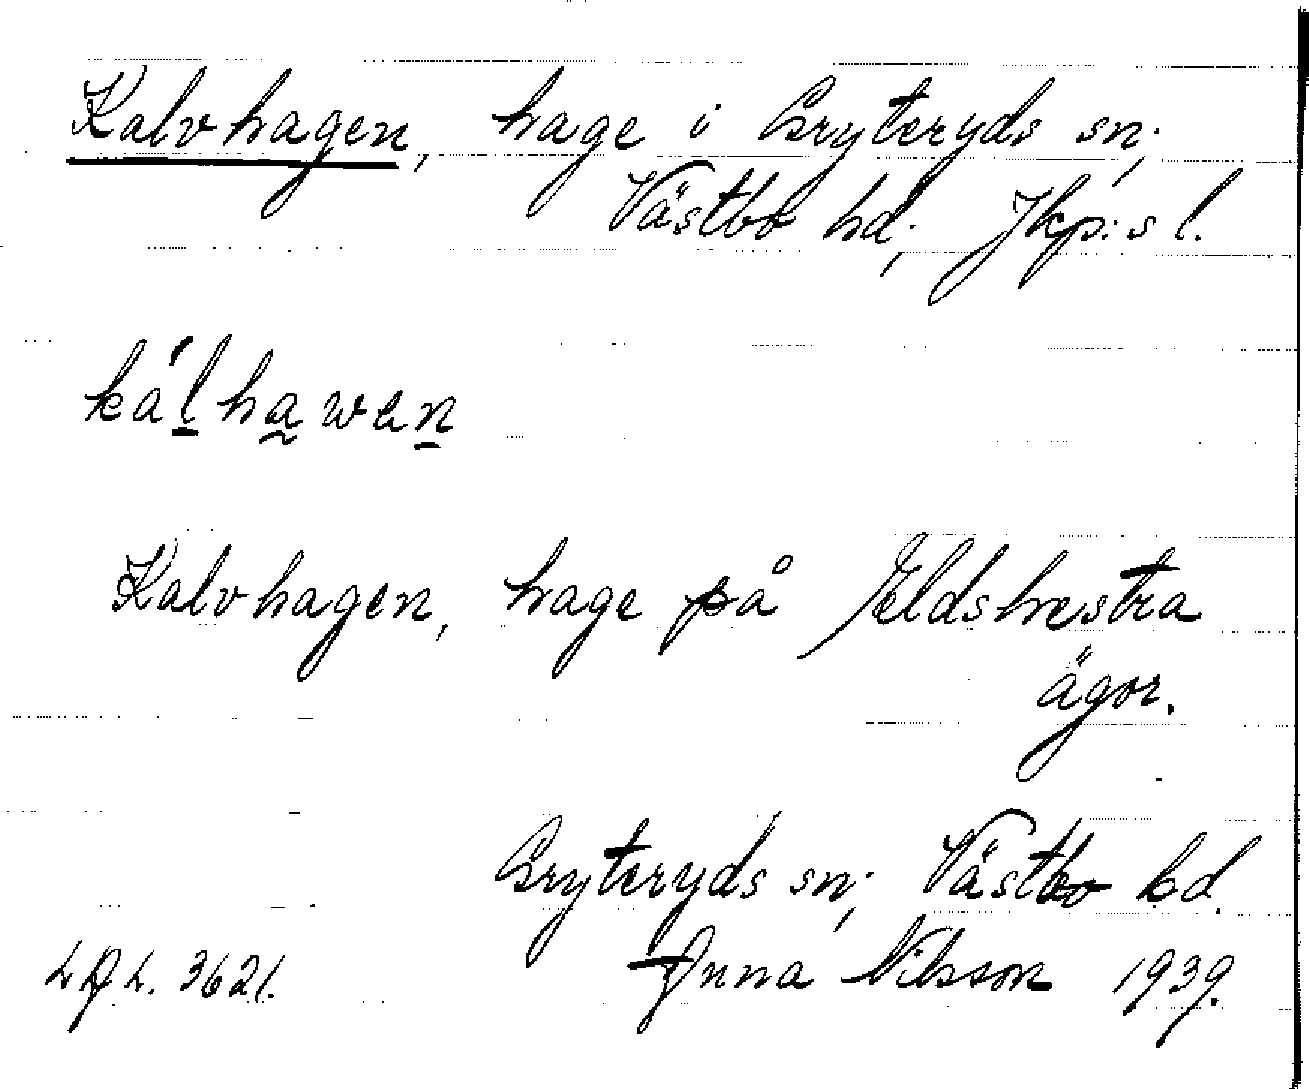 Kalvhagen, hage i Gryteryds sn;
Västbo hd; Jkp:s l.
kálhawen
Kalvhagen, hage på Eldshestra
ägor.
Gryteryds sn; Västbo hd.
Anna Nilsson 1939.
3621.